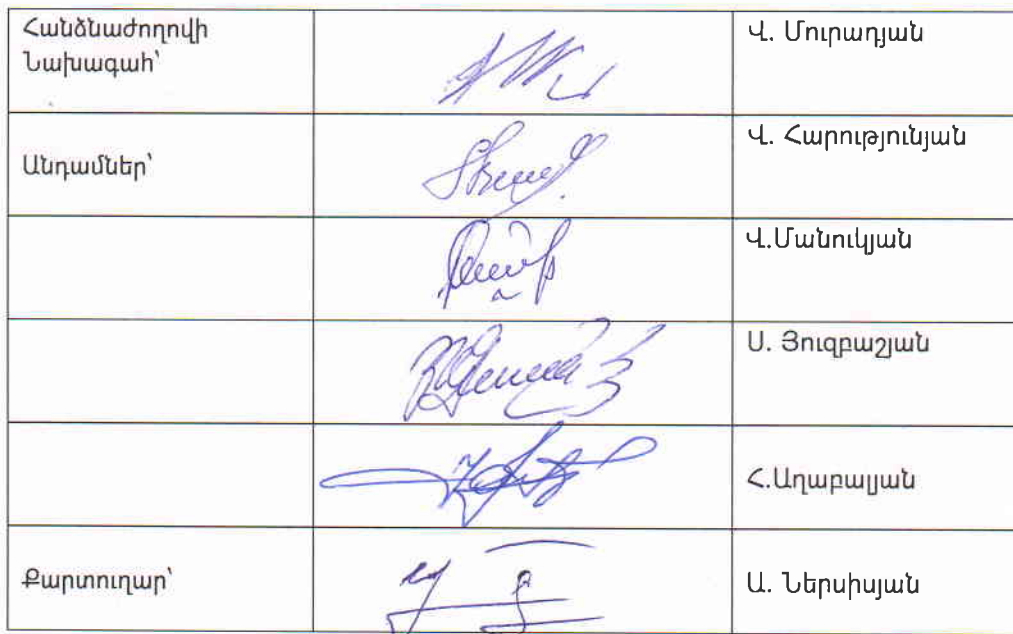 Հանձնաժողովի
Նախագահ՝
Վ. Մուրադյան
Անդամներ՝
Վ. Հարությունյան
Վ.Մանուկյան
Ս. Յուզբաշյան
Հ.Աղաբալյան
Քարտուղար՝
Ա. Ներսիսյան